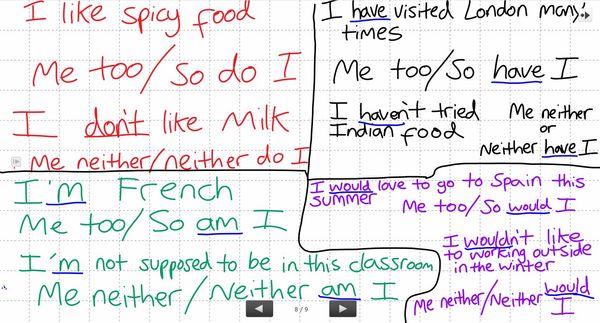 I like spicy food
Me too/So do I
I don't like Milk
Me neither/neither do I
I have visited London many
times
Me too/So have I
I haven't tried
Indian food
Me neither
or
Neither have I
I'm French
Me too/So am I
I'm not supposed to be in this classroom
Me neither/Neither am I
I would love to go to Spain this
summer
Me too/So would I
I wouldn't like
to working outside
in the winter
Me neither/Neither would
I
8/9